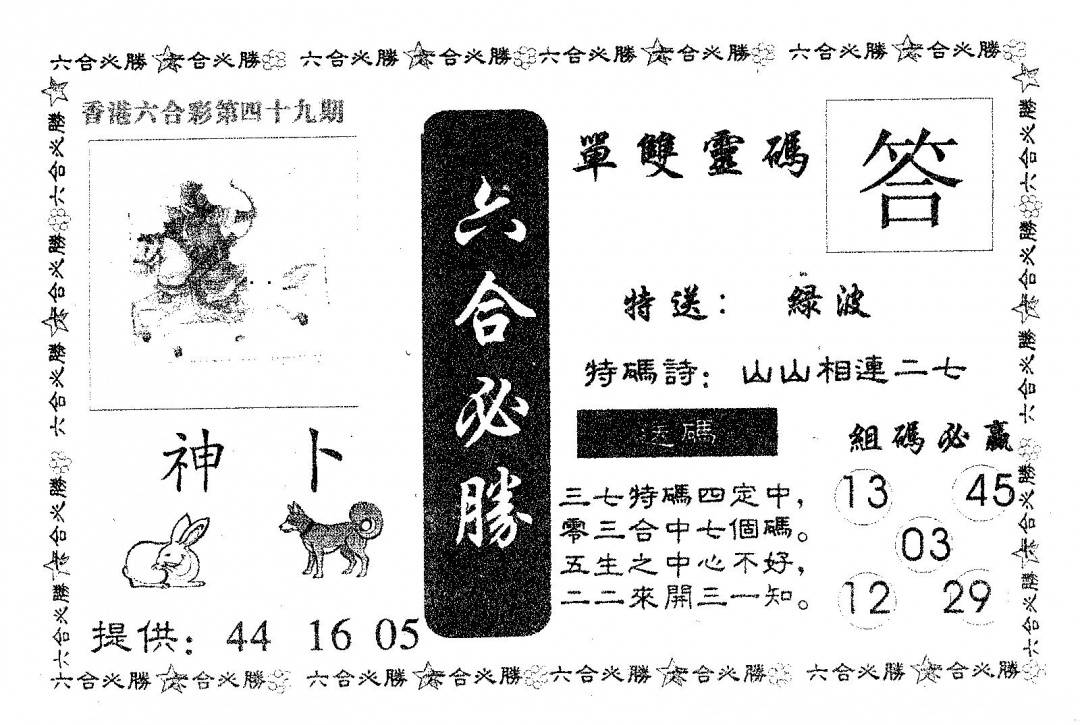 六合必勝☆六合必勝 六合必勝☆六合必勝 六合必勝☆六合必勝 六合必勝☆六合必勝
六合必勝 六合必勝 六合必勝 六合必勝 六合必勝
香港六合彩第四十九期
神卜
提供：44 16 05
六合必勝
單雙靈碼
答
特送：綠波
特碼詩：山山相連二七
送碼
三七特碼四定中，
零三合中七個碼。
五生之中心不好，
二二來開三一知。
組碼必贏
13 45
03
12 29
六合必勝 六合必勝 六合必勝 六合必勝 六合必勝
六合必勝☆六合必勝 六合必勝☆六合必勝 六合必勝☆六合必勝 六合必勝☆六合必勝